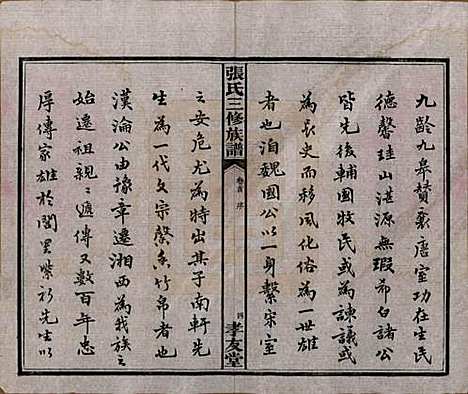 九齡九皋贊襄唐室功在生民
德馨珪山湛源無瑕希白諸公
皆先後輔國牧民或為諫議或
為長史而移風化俗為一世雄
者也洎魏國公以一身繫宋室
張氏三修族譜
卷首 序
四
孝友堂
之安危尤為特出其子南軒先
生為一代文宗馨香竹帛者也
漢淪公由豫章遷湘西為我族之
始遷祖親親遞傳又數百年忠
厚傳家雄於閭里紫衫先生以